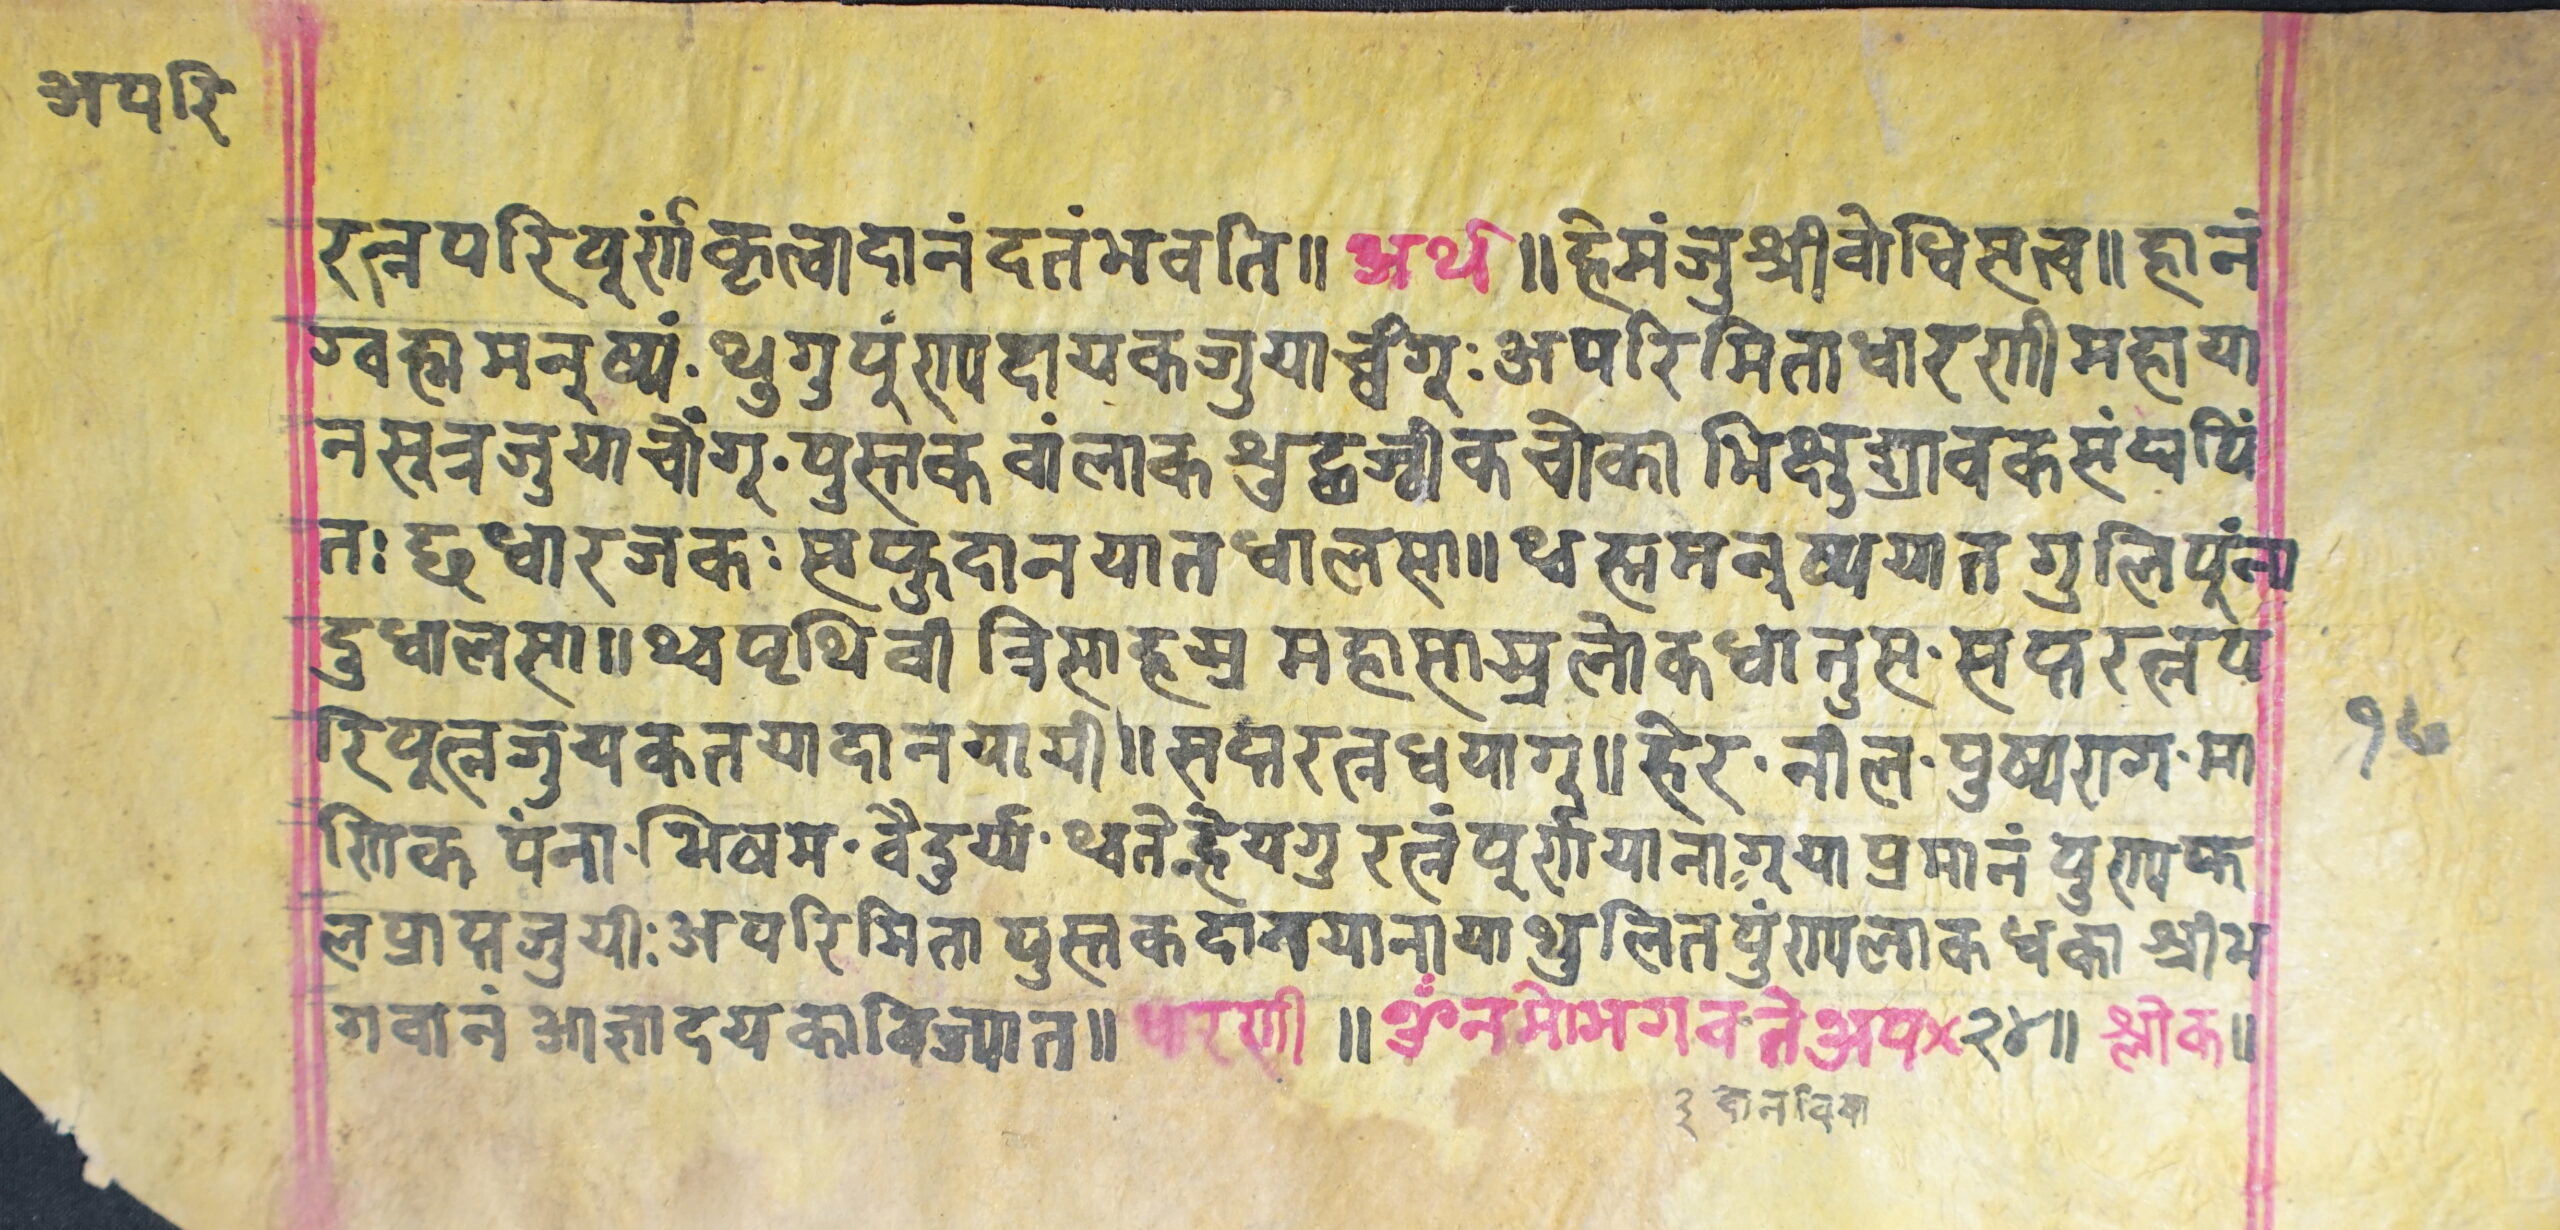 अपरि
रत्नपरिपूर्णं कृत्वा दानं दतं भवति॥ अर्थ ॥ हेमंजुश्रीवोधिसत्व॥ हानं
ग्वह्म मनुष्यं. थुगु पुंण्य दायक जुया च्वंगू: अपरिमिता धारणी महाया
न सूत्र जुया चोंगू. पुस्तक वांलाक शुद्धज्वीक चोका भिक्षु श्रावक संघपिं
त: दृधारजक: सफुदान यात धालसा॥ थ्वह्म मनुष्ययात गुलि पुंना
दु धालसा॥ थ्व पृथिवी त्रिसाहस्र महासास्र लोकधातुस. सप्तरत्न प
रिपूत्न जुयक तया दान यायी॥ सप्तरत्न धयागु॥ हेर. नील. पुष्यराग. मा
णिक पंना. भिषम. वैदुर्य्य. थ्वते ह्नेयगु रत्नं पूर्णयानागूया प्रमानं पुण्य फ
ल प्राप्त जुयी: अपरिमिता पुस्तक दान याना या थुलित पुंण्य लाक धका श्रीभ
गवानं आज्ञा दयका विज्यात॥ धारणी ॥ ॐ नमो भगवते अप×२४॥ श्लोक॥
३ दानविया